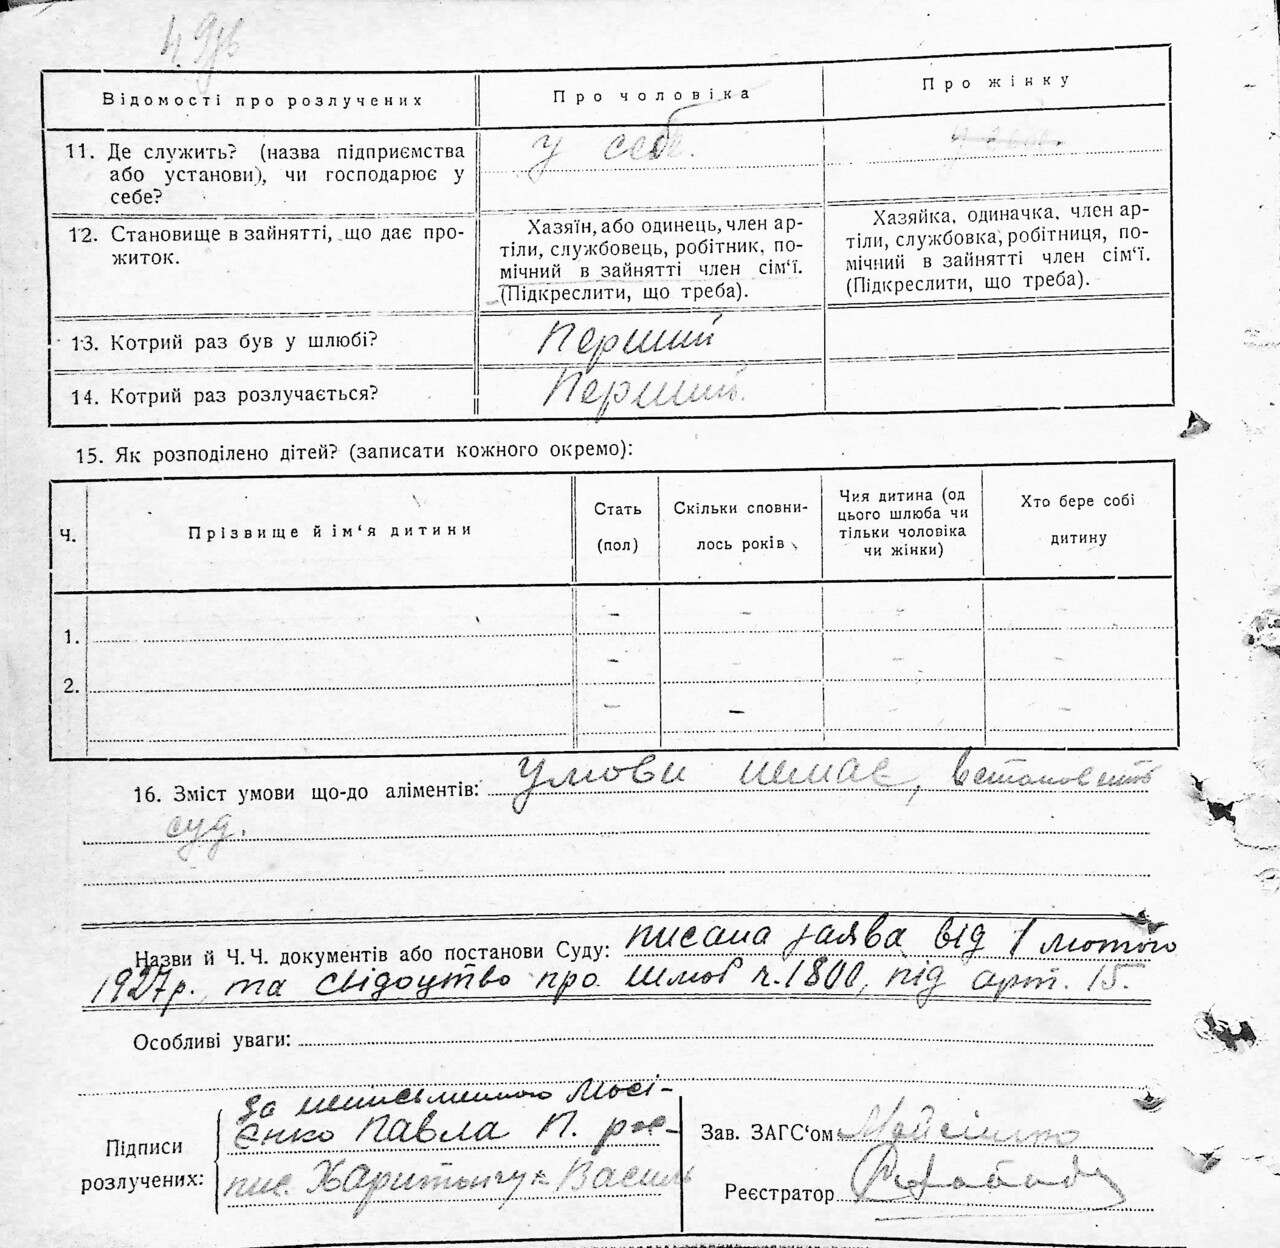 Відомості про розлучених
Про чоловіка
Про жінку
11. Де служить? (назва підприємства
або установи), чи господарює у
себе?
у себе.
12. Становище в зайнятті, що дає про-
житок.
Хазяїн, або одинець, член ар-
тіли, службовець, робітник, по-
мічний в зайнятті член сім‘ї.
(Підкреслити, що треба).
Хазяйка, одиначка, член ар-
тіли, службовка, робітниця, по-
мічний в зайнятті член сім‘ї.
(Підкреслити, що треба).
13. Котрий раз був у шлюбі?
Перший
14. Котрий раз розлучається?
Перший.
15. Як розподілено дітей? (записати кожного окремо):
Ч.
Прізвище й ім‘я дитини
Стать
(пол)
Скільки сповни-
лось років
Чия дитина (од
цього шлюба чи
тільки чоловіка
чи жінки)
Хто бере собі
дитину
1.
2.
16. Зміст умови що-до аліментів: Умови немає, встановить
суд.
Назви й Ч.Ч. документів або постанови Суду: писана заява від 1 лютого
1927 р. та свідоцтво про шлюб ч. 1800, під арт. 15.
Особливі уваги:
Підписи
розлучених:
за неписьменного Мосі-
єнко Павла П. роз-
пис. Харитончук Василь
Зав. ЗАГС‘ом
Реєстратор